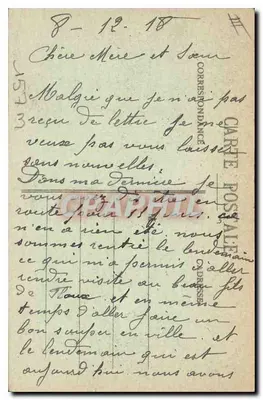 8-12-18
III
Chère Mère et Sœur
Malgré que je n'ai pas
reçu de lettre je ne
veux pas vous laisser
sans nouvelles.
Dans ma dernière je
vous
route pour
n'en a rien été nous
sommes rentré le lendemain
ce qui m'a permis d'aller
rendre visite au beau fils
de et en même
temps d'aller faire un
bon souper en ville et
le lendemain qui est
aujourd'hui nous avons
CARTE POSTALE
CORRESPONDANCE
ADRESSE